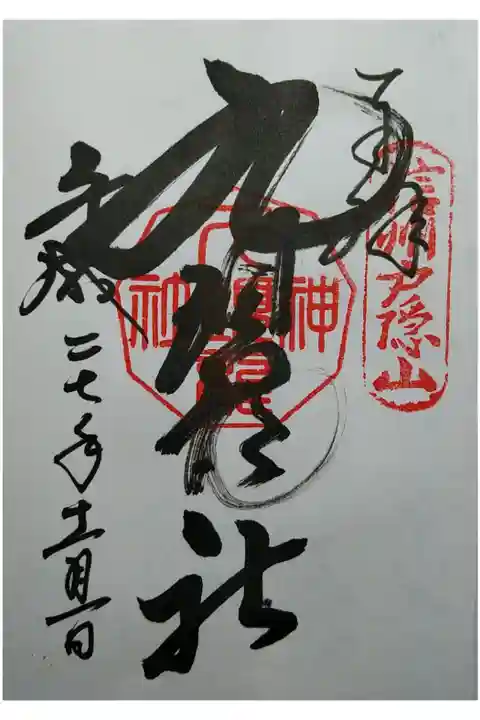 奉拝
信州戸隠山
九頭龍社
平成二七年十一月一日